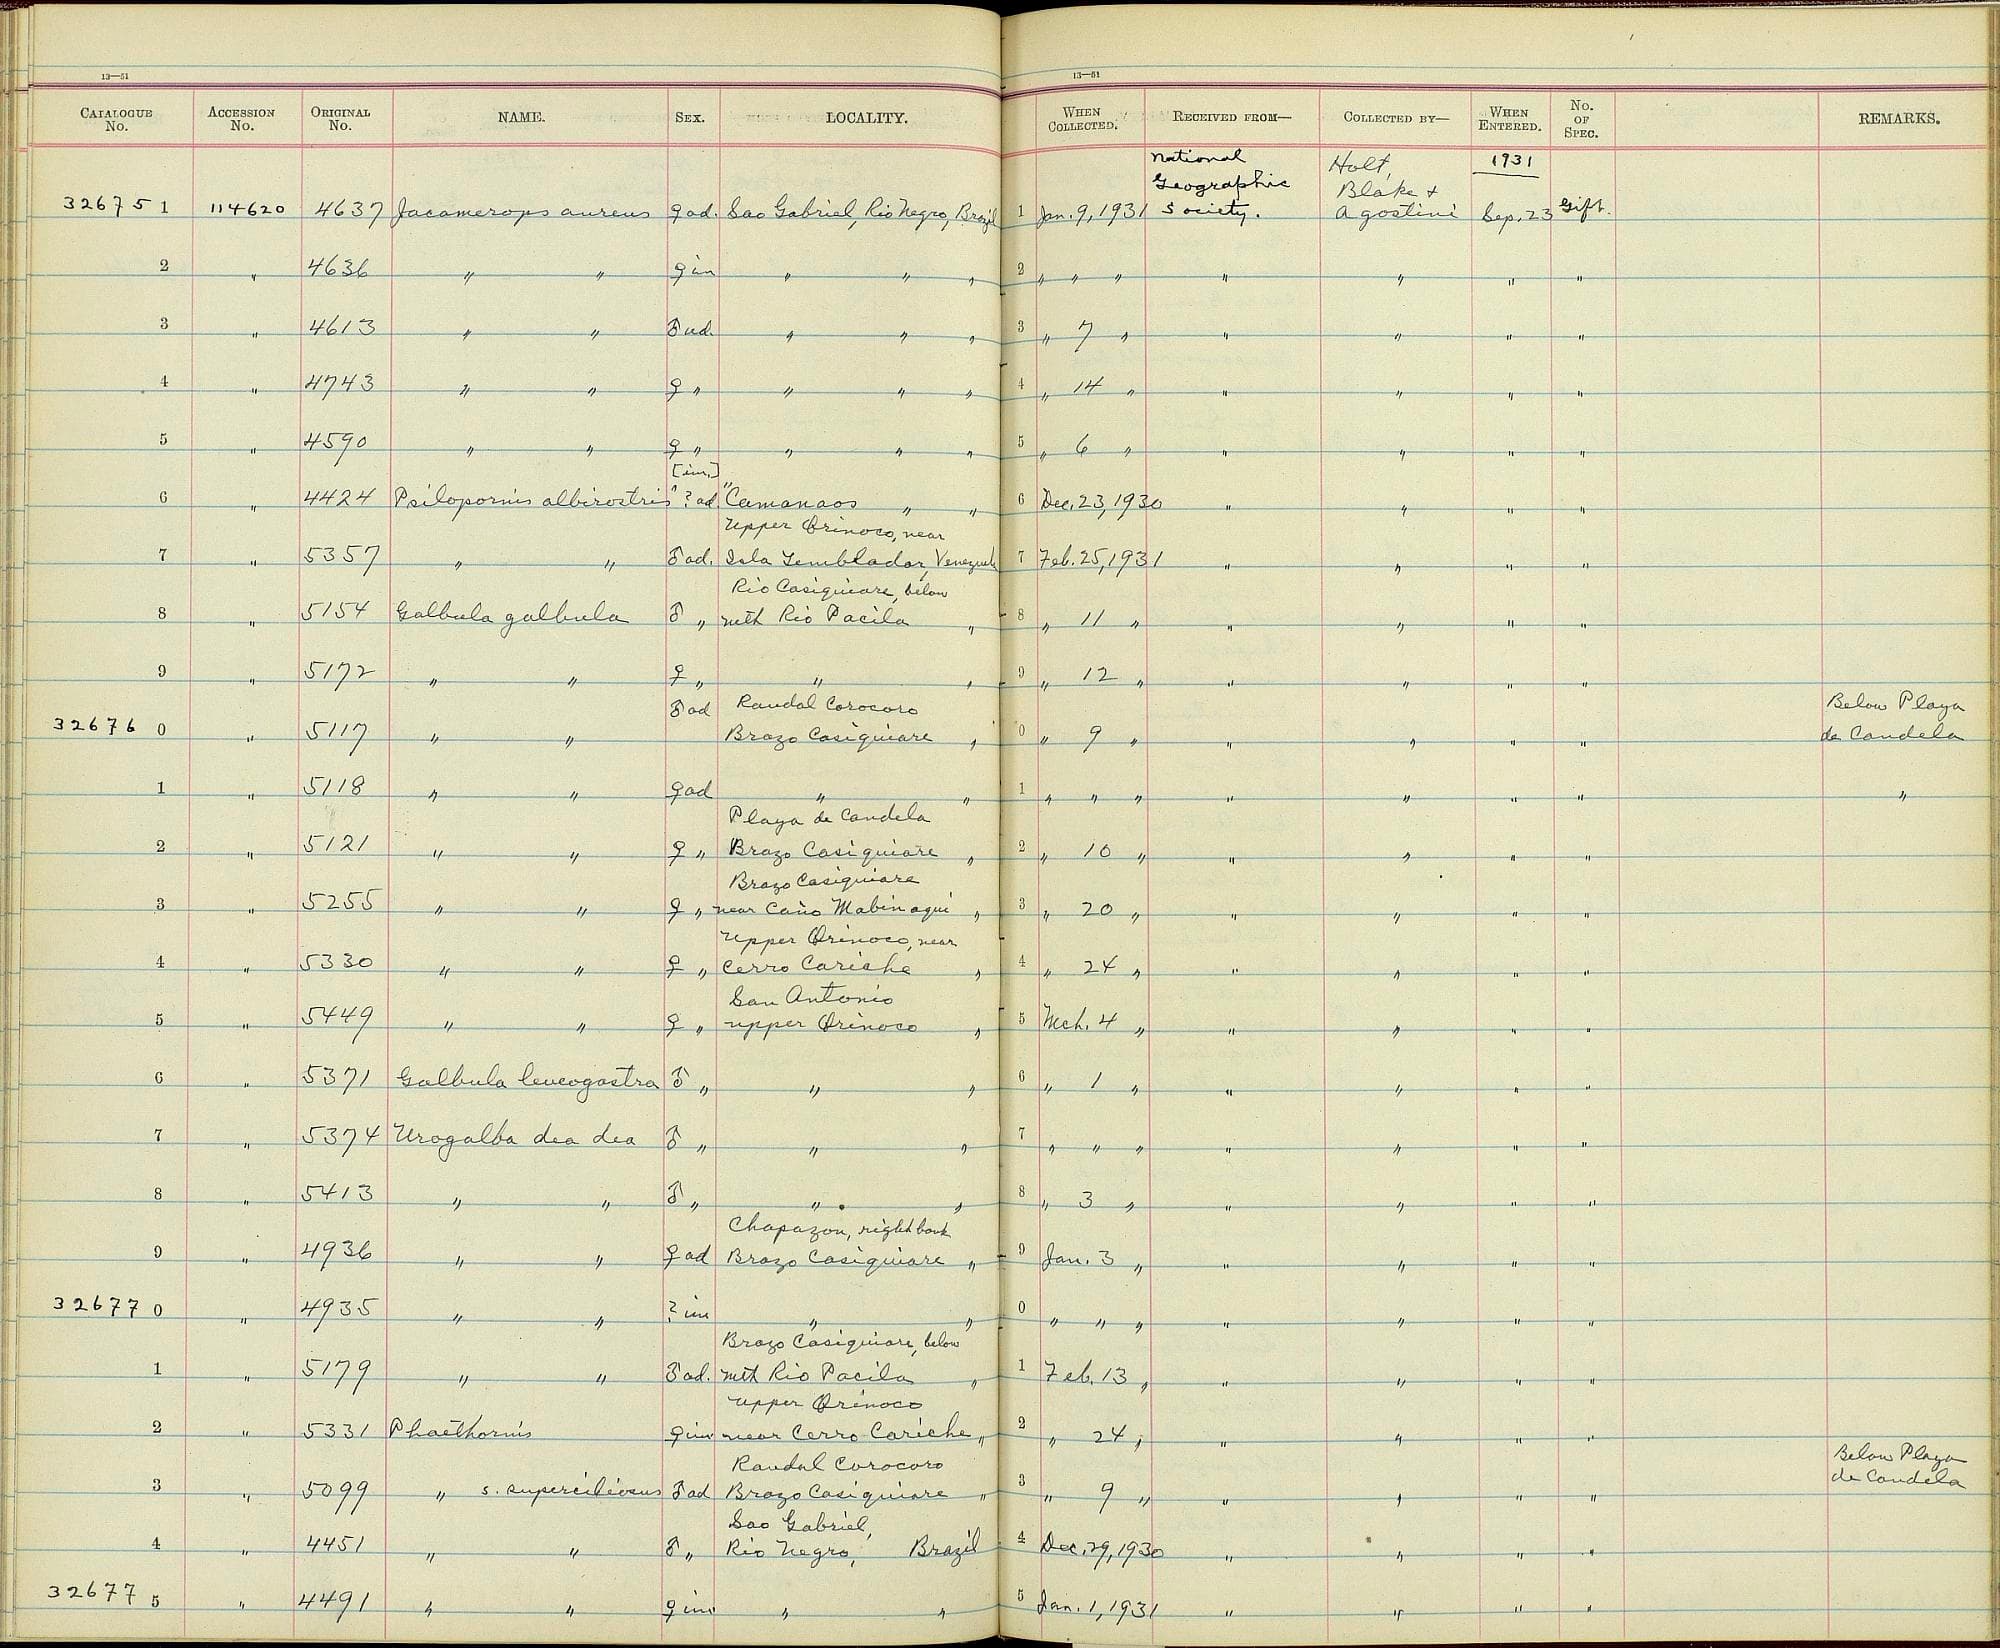 13—51
CATALOGUE No. ACCESSION No. ORIGINAL No. NAME. SEX. LOCALITY.
13—51
WHEN COLLECTED. RECEIVED FROM— COLLECTED BY— WHEN ENTERED. No. OF SPEC. REMARKS.
National Geographic Society. Holt, Blake + Agostini 1931
32675 1 114620 4637 Jacamerops aureus ♀ ad. Sao Gabriel, Rio Negro, Brazil 1 Jan. 9, 1931 Sep. 23 Gift.
2 " 4636 " " ♀ im " " " 2 " " " " " " "
3 " 4613 " " ♂ ad. " " " 3 " 7 " " " " "
4 " 4743 " " ♀ " " " " 4 " 14 " " " " "
5 " 4590 " " ♀ " " " " 5 " 6 " " " " "
[im.]
6 " 4424 Psilopornis albirostris ? ad. " Camanaos " " 6 Dec. 23, 1930 " " " "
Upper Orinoco, near
7 " 5357 " " ♂ ad. Isla Temblador, Venezuela 7 Feb. 25, 1931 " " " "
Rio Casiquiare, below
8 " 5154 Galbula galbula ♂ " mth Rio Pacila " 8 " 11 " " " " "
9 " 5172 " " ♀ " " " 9 " 12 " " " " "
♂ ad Raudal Corocoro Below Playa
32676 0 " 5117 " " Brazo Casiquiare " 0 " 9 " " " " " de Candela
1 " 5118 " " ♀ ad " " 1 " " " " " " " "
Playa de Candela
2 " 5121 " " ♀ " Brazo Casiquiare " 2 " 10 " " " " "
Brazo Casiquiare
3 " 5255 " " ♀ " near Caño Mabinaqui " 3 " 20 " " " " "
Upper Orinoco, near
4 " 5330 " " ♀ " Cerro Cariche " 4 " 24 " " " " "
San Antonio
5 " 5449 " " ♀ " upper Orinoco " 5 Mch. 4 " " " " "
6 " 5371 Galbula leucogastra ♂ " " " 6 " 1 " " " " "
7 " 5374 Urogalba dea dea ♂ " " " 7 " " " " " " "
8 " 5413 " " ♂ " " " 8 " 3 " " " " "
Chapazon, right bank
9 " 4936 " " ♀ ad Brazo Casiquiare " 9 Jan. 3 " " " " "
32677 0 " 4935 " " ? im " " 0 " " " " " " "
Brazo Casiquiare, below
1 " 5179 " " ♂ ad. mth Rio Pacila " 1 Feb. 13 " " " " "
upper Orinoco
2 " 5331 Phaethornis ♀ im near Cerro Cariche " 2 " 24 " " " " "
Raudal Corocoro Below Playa
3 " 5099 " s. superciliosus ♂ ad Brazo Casiquiare " 3 " 9 " " " " " de Candela
Sao Gabriel,
4 " 4451 " " ♂ " Rio Negro, Brazil 4 Dec. 29, 1930 " " " "
32677 5 " 4491 " " ♀ im " " 5 Jan. 1, 1931 " " " "